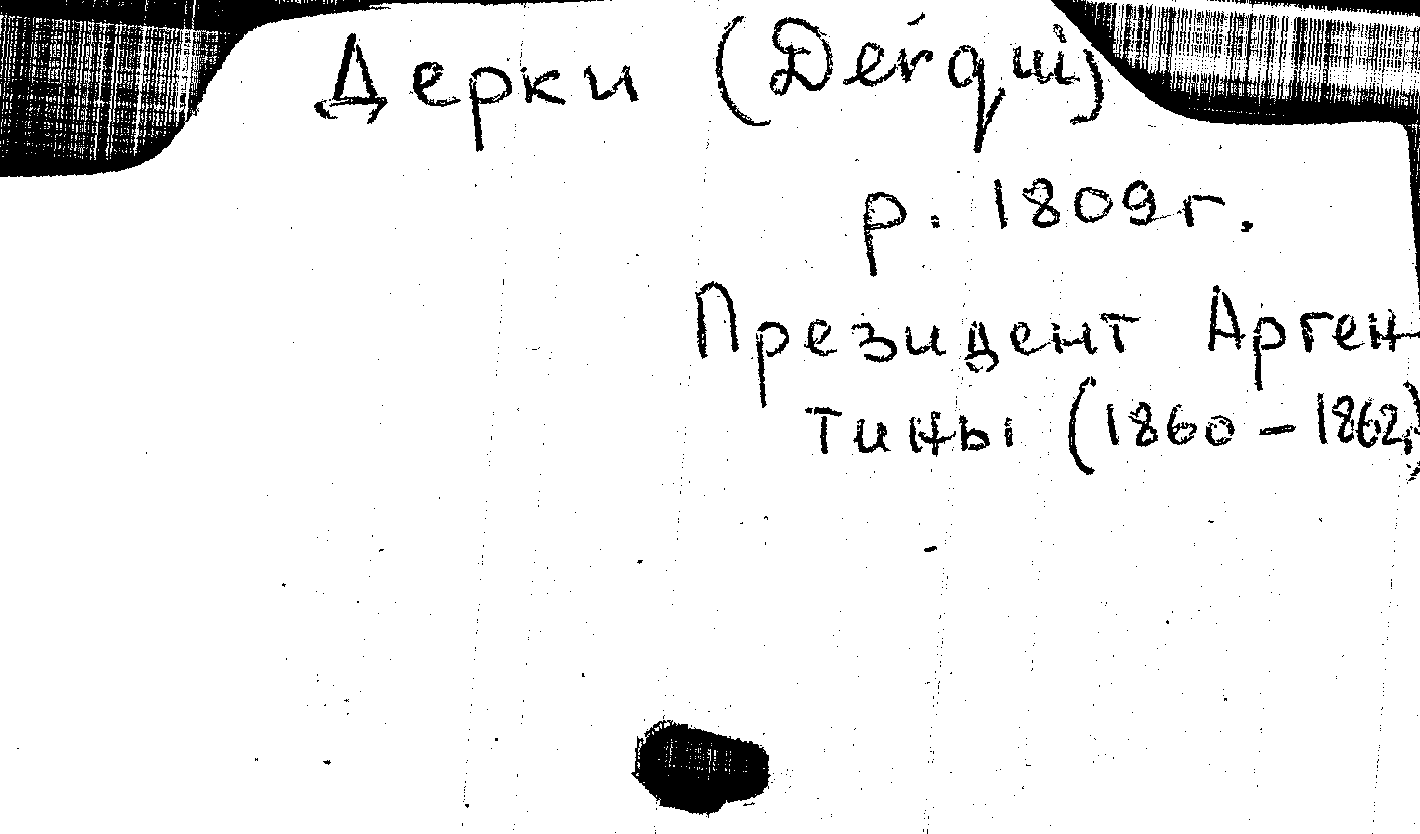 Дерки (Derqui)
р. 1809г.
Президент Арген
тины (1860-1862)